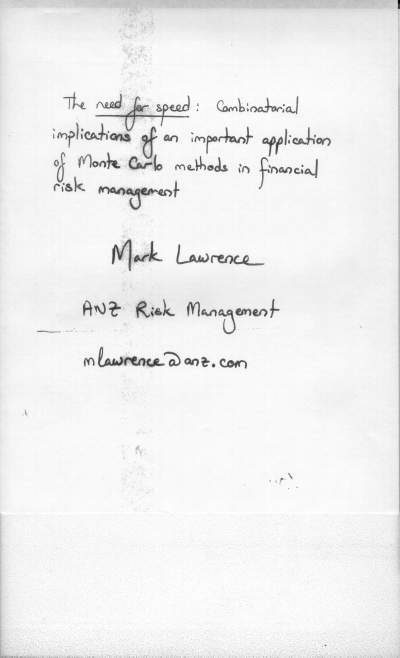 The need for speed: Combinatorial
implications of an important application
of Monte Carlo methods in financial
risk management
Mark Lawrence
ANZ Risk Management
mlawrence@anz.com